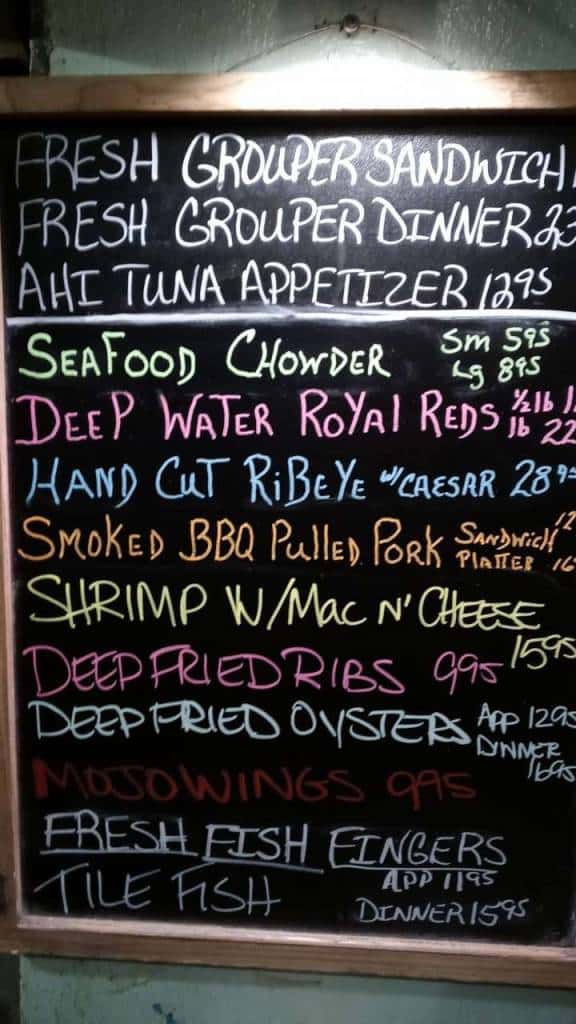 FRESH GROUPER SANDWICH
FRESH GROUPER DINNER 23
AHI TUNA APPETIZER 1295
SEAFOOD CHOWDER Sm 595
Lg 895
DEEP WATER ROYAL REDS ½lb
lb 22
HAND CUT RiBEYE w/CAESAR 28 95
SMOKED BBQ PULLED PORK SANDWICH 12
PLATTER 16
SHRIMP W/MAC N' CHEESE
1595
DEEP FRIED RIBS 995
DEEP FRIED OYSTERS APP 1295
DINNER
1695
MOJO WINGS 995
FRESH FISH FINGERS
APP 1195
TILE FISH
DINNER 1595